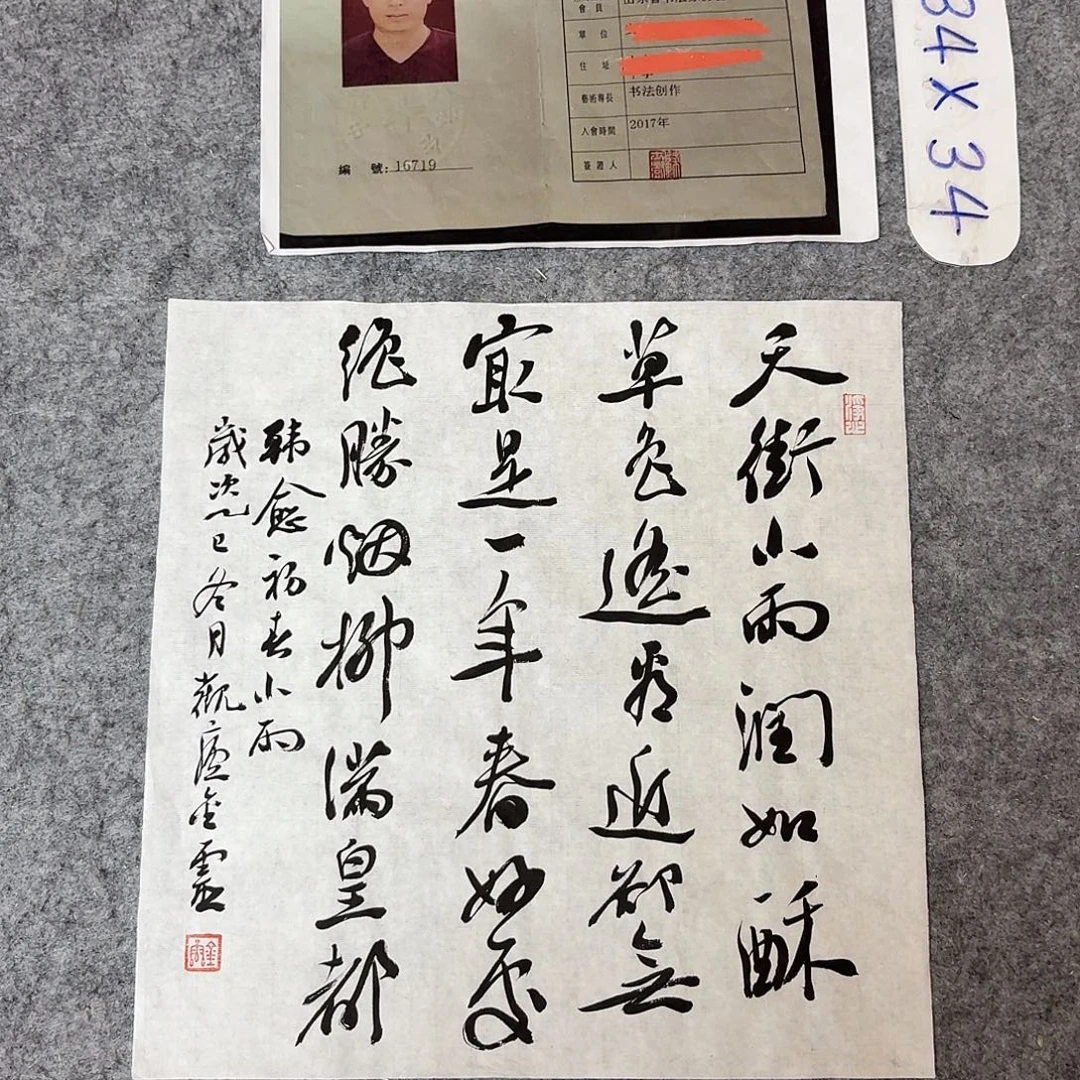 會員
單位
住址
藝術專長 书法创作
入會時間 2017年
簽證人
編號:16719
34 X 34
天街小雨润如酥
草色遥看近欲无
寂是一年春好处
绝勝烟柳满皇都
韩愈初春小雨
歲次乙巳冬月觀廬金靈